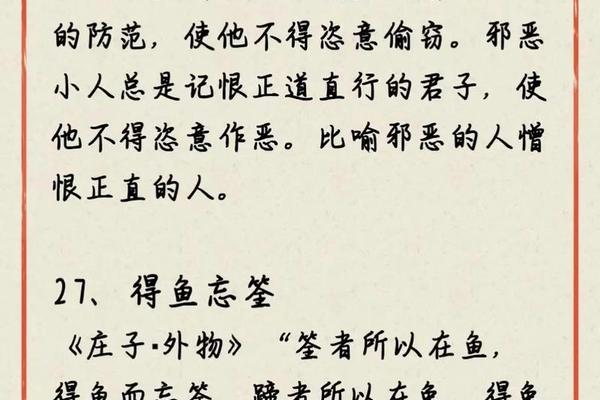 的防范，使他不得恣意偷窃。邪恶
小人总是记恨正道直行的君子，使
他不得恣意作恶。比喻邪恶的人憎
恨正直的人。
27、得鱼忘筌
《庄子·外物》“筌者所以在鱼，
得鱼而忘筌，蹄者所以在兔，得兔